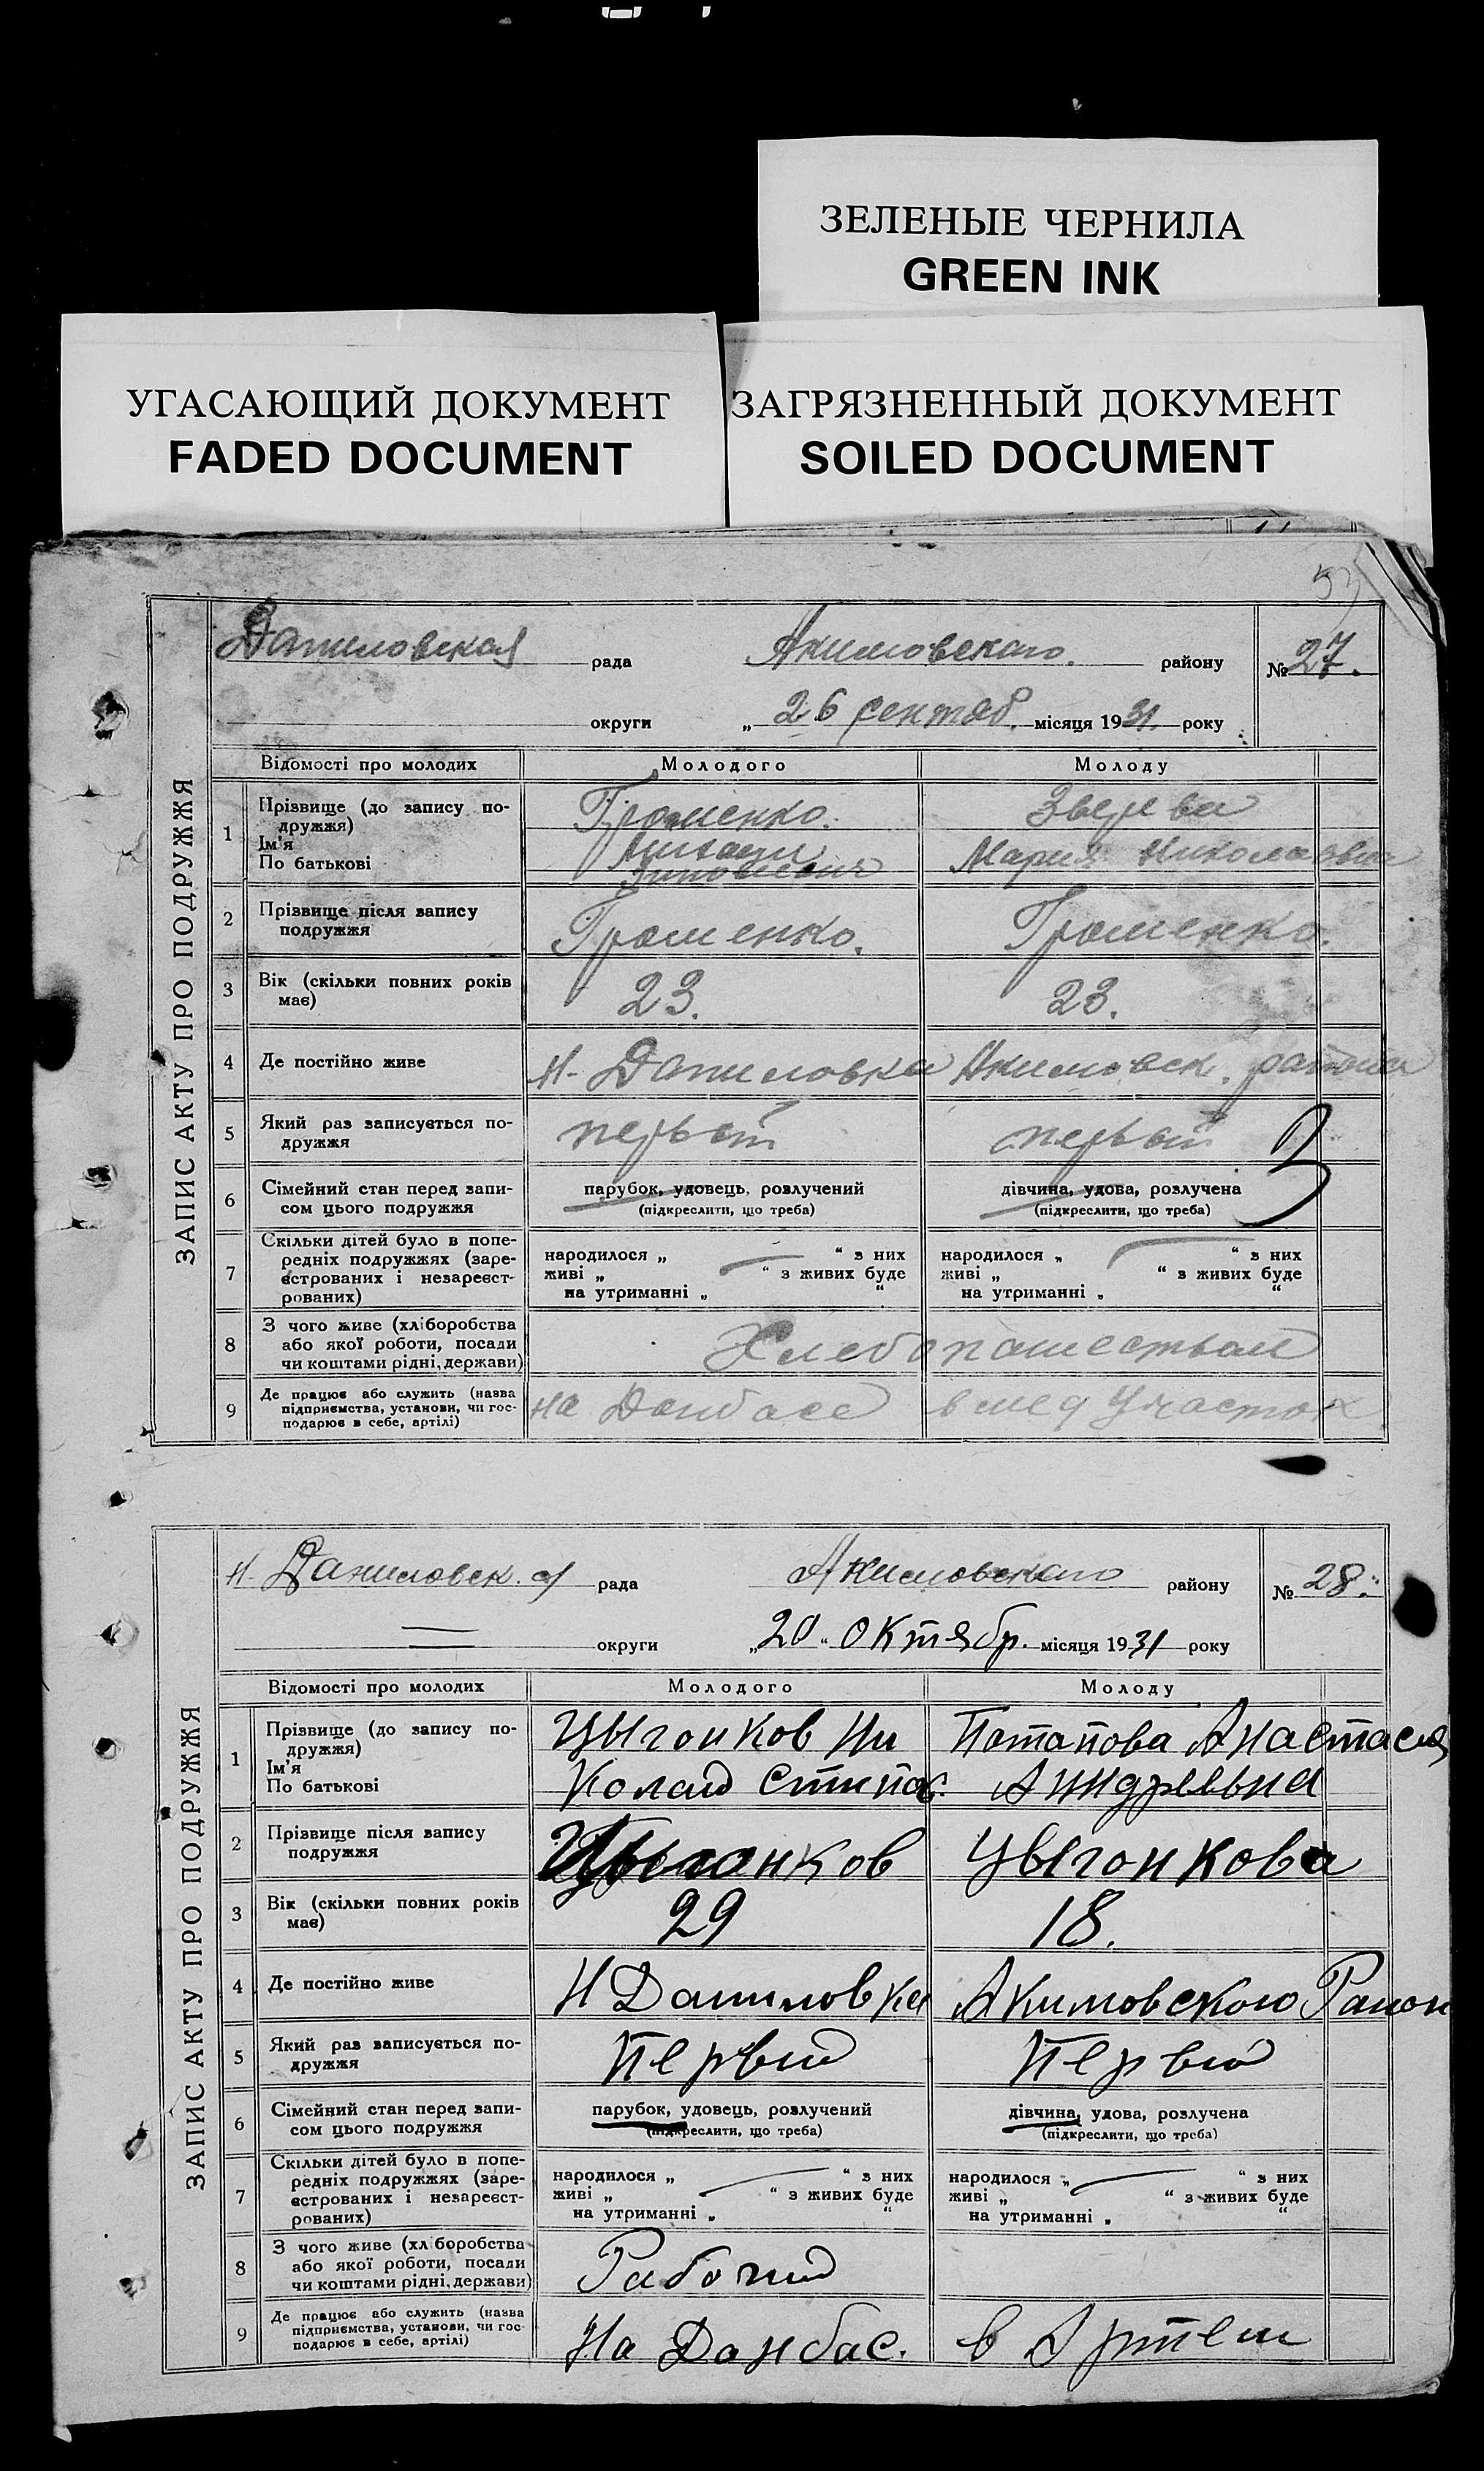 ЗЕЛЕНЫЕ ЧЕРНИЛА
GREEN INK
УГАСАЮЩИЙ ДОКУМЕНТ
FADED DOCUMENT
ЗАГРЯЗНЕННЫЙ ДОКУМЕНТ
SOILED DOCUMENT
53
ЗАПИС АКТУ ПРО ПОДРУЖЖЯ
Даниловская рада Акимовского району № 27.
округи „ 26 сентяб. місяця 1931. року
Відомості про молодих Молодого Молоду
1 Прізвище (до запису подружжя) Громенко. Зверева
Ім'я
По батькові Мария Николаевна
2 Прізвище після запису
подружжя Громенко. Громенко.
3 Вік (скільки повних років
має) 23. 23.
4 Де постійно живе Н-Даниловка Акимовск. района
5 Який раз записується по-
дружжя первый первый
6 Сімейний стан перед запи- парубок, удовець, розлучений дівчина, удова, розлучена
сом цього подружжя (підкреслити, що треба) (підкреслити, що треба)
7 Скільки дітей було в попе-
редніх подружжях (заре- народилося „ “ з них народилося „ “ з них
єстрованих і незареєст- живі „ “ з живих буде живі „ “ з живих буде
рованих) на утриманні „ “ на утриманні „ “
8 З чого живе (хліборобства
або якої роботи, посади Хлебопашеством
чи коштами рідні, держави)
9 Де працює або служить (назва
підприємства, установи, чи гос- на Донбасе
подарює в себе, артілі)
ЗАПИС АКТУ ПРО ПОДРУЖЖЯ
Н-Даниловск.ая рада Акимовского району № 28.
округи „20“ октябр. місяця 1931 року
Відомості про молодих Молодого Молоду
1 Прізвище (до запису по-
дружжя) Цыгонков Ни Потапова Анастасия
Ім'я
По батькові колай Степа Андреевна
2 Прізвище після запису
подружжя Цыгонков Цыгонкова
3 Вік (скільки повних років
має) 29 18.
4 Де постійно живе Н Даниловка Акимовского Район
5 Який раз записується по-
дружжя Первий Первий
6 Сімейний стан перед запи- парубок, удовець, розлучений дівчина, удова, розлучена
сом цього подружжя (підкреслити, що треба) (підкреслити, що треба)
7 Скільки дітей було в попе-
редніх подружжях (заре- народилося „ “ з них народилося „ “ з них
єстрованих і незареєст- живі „ “ з живих буде живі „ “ з живих буде
рованих) на утриманні „ “ на утриманні „ “
8 З чого живе (хліборобства
або якої роботи, посади Рабочий
чи коштами рідні, держави)
9 Де працює або служить (назва
підприємства, установи, чи гос- На Донбас. в Артели
подарює в себе, артілі)